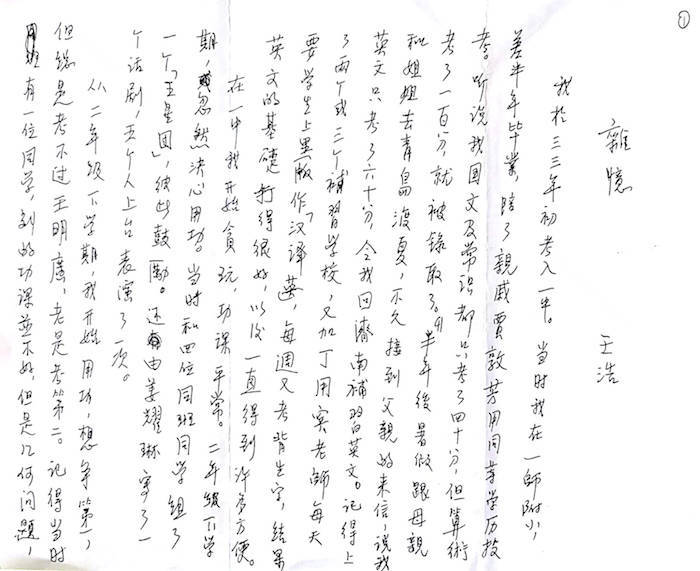 ①
雜憶
王浩
我於三三年初考入一中。当时我在一師附小，
差半年毕業，陪了親戚賈敦芳用同等学历投
考。听说我国文及常识都只考了四十分，但算術
考了一百分，就被錄取了。半年後暑假跟母親
和姐姐去青島渡夏，不久接到父親的来信，说我
英文只考了六十分，令我回濟南補習英文。记得上
了两个或三个補習学校，又加丁用宾老師每天
要学生上黑版作「汉译英」，每週又考背生字，结果
英文的基礎打得很好，以後一直得到许多方便。
在一中我开始貪玩，功课平常。二年级下学
期，忽然决心用功。当时和四位同班同学组了
一个「五星团」，彼此鼓勵。还由姜耀琳寫了一
个话剧，五个人上台表演了一次。
从二年级下学期，我开始用功，想争第一，
但総是考不过王明廣，老是考第二。记得当时
有一位同学，别的功课並不好，但是几何问题，